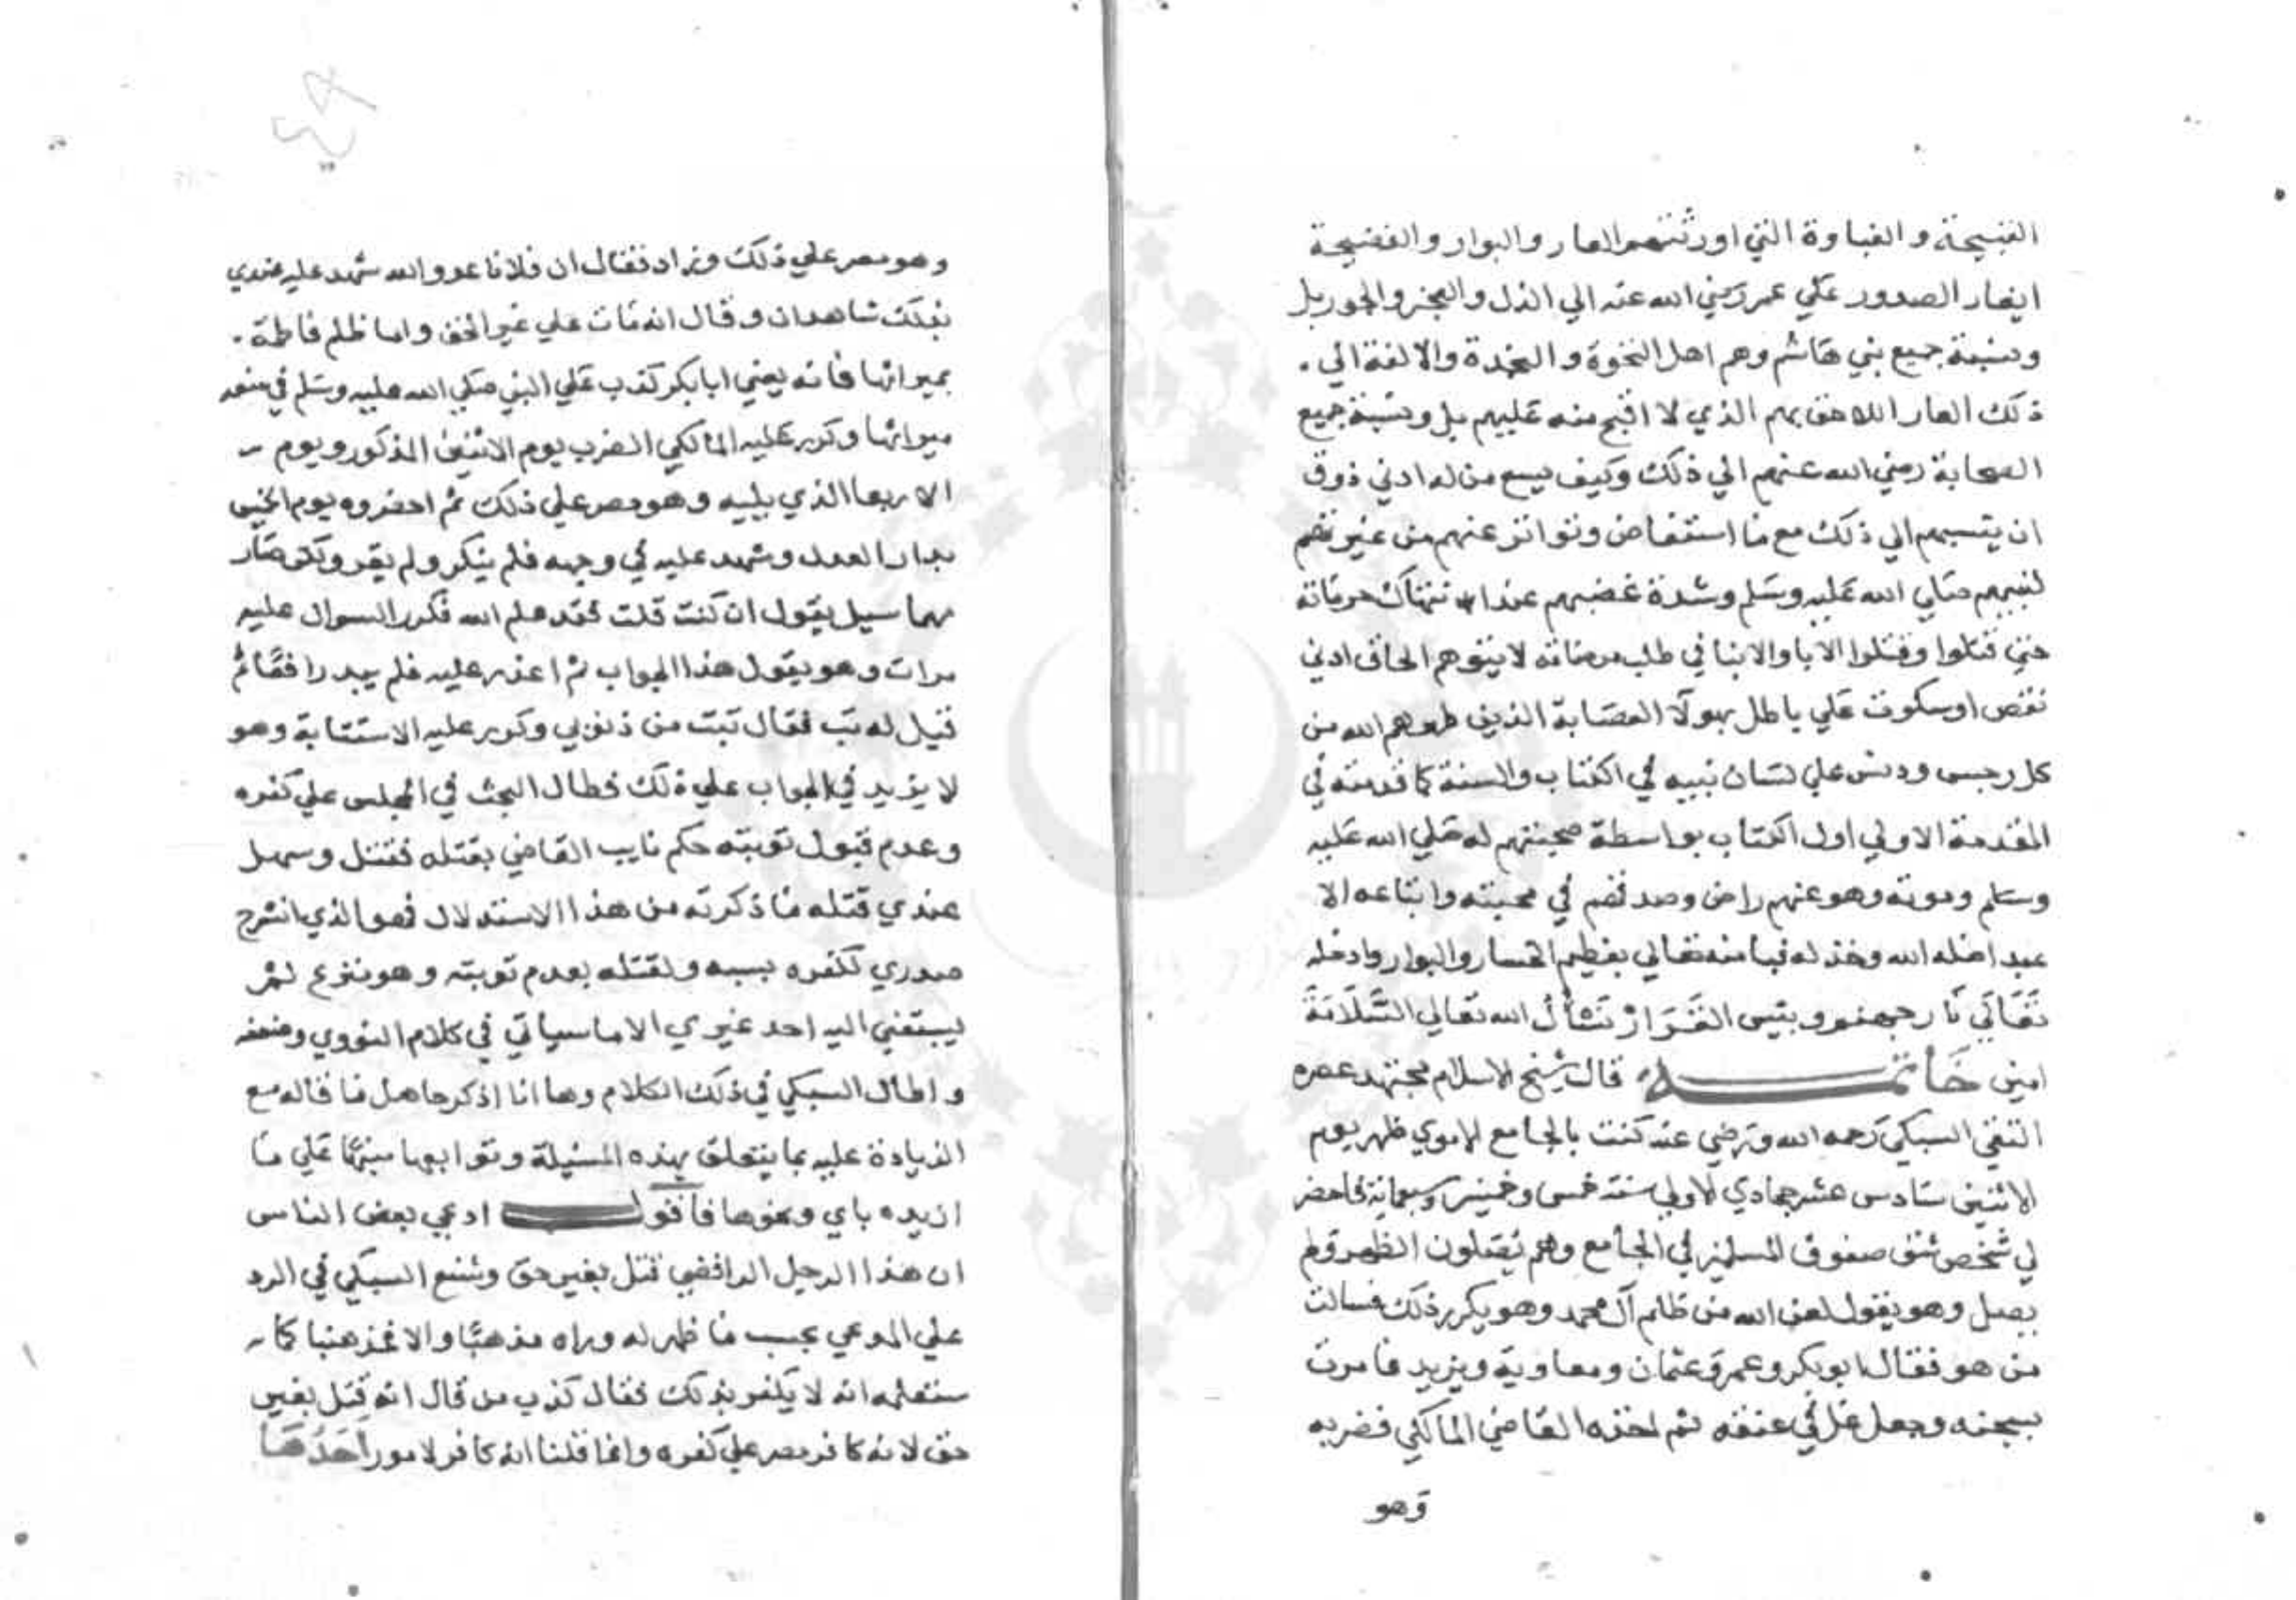 القبيحة والغباوة التي اورثتهم العار والبوار والفضيحة
ايغار الصدور علي عمر رضي الله عنه الي الذل والعجز والجور بل
ونسبة جميع بني هاشم وهم اهل النخوة والنجدة والانفة الي .
ذلك العار اللاحق بهم الذي لا اقبح منه عليهم بل ونسبة جميع
الصحابة رضي الله عنهم الي ذلك وكيف يسع من له ادني ذوق
ان ينسبهم الي ذلك مع ما استفاض وتواتر عنهم من غيرتهم
لنبيهم صلي الله عليه وسلم وشدة غضبهم عند انتهاك حرماته
حتي قتلوا وقتلوا الابا والابنا في طلب مرضاته لا يتوهم الحاق ادني
نقص او سكوت علي باطل بهولآ العصابة الذين طهرهم الله من
كل رجس ودنس علي لسان نبيه في الكتاب والسنة كما قدمته في
المقدمة الاولي اول الكتاب بواسطة صحبتهم له صلي الله عليه
وسلم وموته وهو عنهم راض وصدقهم في محبته واتباعه الا
عبد اضله الله وخذله فبا منه تعالي بعظيم الخسار والبوار وادخله
تَعَالَي نَا رجهنم وبئيس القَرَارْ نَسْأَل الله تعالي السَّلَامَةَ
امين خَاتمــــه قال شيخ الاسلام مجتهد عصره
التقي السبكي رحمه الله ورضي عنه كنت بالجامع الاموي ظهر يوم
الاثنين سادس عشر جمادي الاولي سنة خمس وخمسين وسبعمائة فاحضر
لي شخص شق صفوف المسلمين في الجامع وهم يصلون الظهر ولم
يصل وهو يقول لعن الله من ظلم آل محمد وهو يكرر ذلك فسالت
من هو فقال ابو بكر وعمر وعثمان ومعاوية ويزيد فامرت
بسجنه وجعل غل في عنقه ثم اخذه القاضي المالكي فضربه
وهو
وهو مصر علي ذلك وزاد فقال ان فلانا عدو الله شهد عليه عندي
بذلك شاهدان وقال انه مات علي غير الحق واما ظلم فاطمة .
بميراثها فانه يعني ابا بكر كذب علي النبي صلي الله عليه وسلم في منعه
ميراثها وكرر عليه المالكي الضرب يوم الاثنين المذكور ويوم
الاربعا الذي يليه وهو مصر علي ذلك ثم احضروه يوم الخميس
بدار العدل وشهد عليه في وجهه فلم ينكر ولم يقر ولكن صار
مهما سيل يقول ان كنت قلت فقد علم الله فكرر السوال عليه
مرات وهو يقول هذا الجواب ثم اعذر عليه فلم يبد دافعا ثم
قيل له تب فقال تبت من ذنوبي وكرر عليه الاستتابة وهو
لا يزيد في الجواب علي ذلك فطال البحث في المجلس علي كفره
وعدم قبول توبته حكم نايب القاضي بقتله فقتل وسهل
عندي قتله ما ذكرته من هذا الاستدلال فهو الذي انشرح
صدري لكفره بسببه ولقتله بعدم توبته وهو منزع لم
يسبقني اليه احد غيري الا ما سياتي في كلام النووي وضعفه
واطال السبكي في ذلك الكلام وها انا اذكر حاصل ما قاله مع
الزيادة عليه بما يتعلق بهذه المسئلة وتوابعها منبها علي ما
ازيده باي ونحوها فاقول ادعي بعض الناس
ان هذا الرجل الرافضي قتل بغير حق وشنع السبكي في الرد
علي المدعي بحسب ما ظهر له وراه مذهبا والا فمذهبنا كما
ستعلمه انه لا يكفر بذلك فقال كذب من قال انه قتل بغير
حق لانه كافر مصر علي كفره وانما قلنا انه كافر لامور اَحَدُهَا